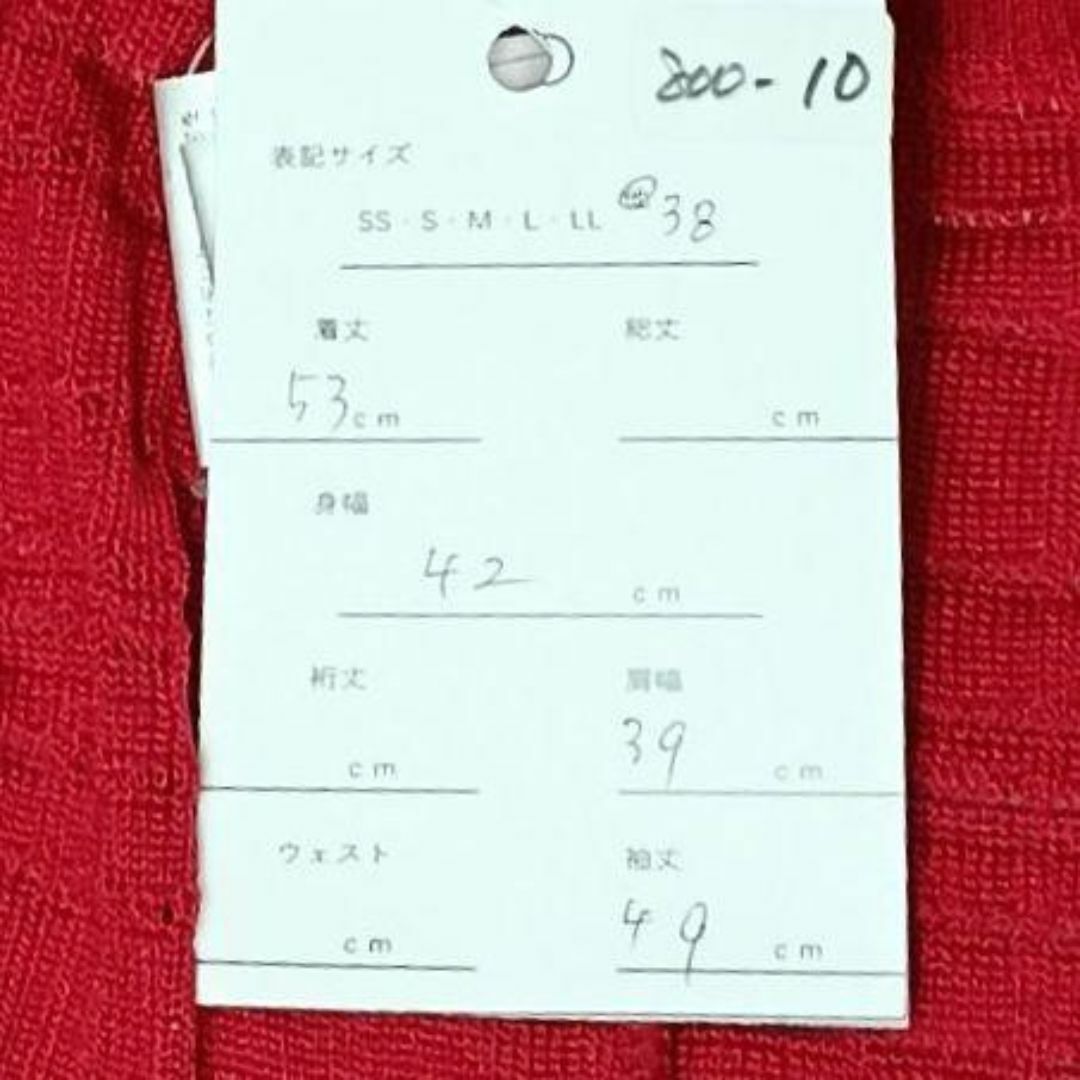 200-10
表記サイズ
SS・S・M・L・LL 38
着丈 総丈
53cm cm
身幅
42 cm
裄丈 肩幅
cm 39 cm
ウェスト 袖丈
cm 49 cm